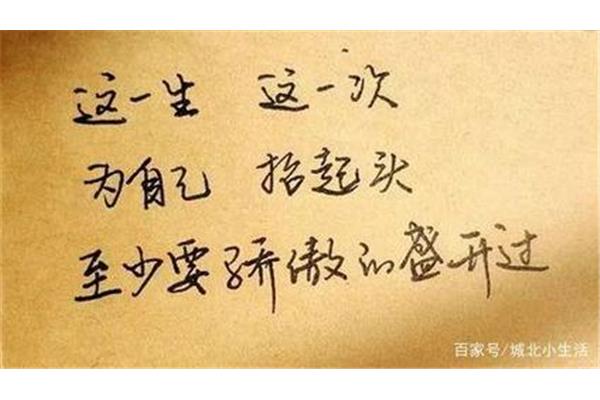 这一生 这一次
为自己 抬起头
至少要骄傲的盛开过
百家号/城北小生活